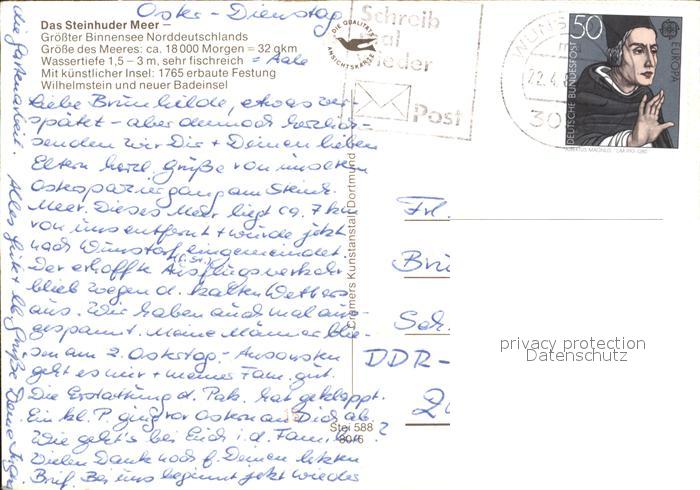 Oster-Dienstag
Das Steinhuder Meer –
Größter Binnensee Norddeutschlands
Größe des Meeres: ca. 18 000 Morgen = 32 qkm
Wassertiefe 1,5 – 3 m, sehr fischreich = Aale
Mit künstlicher Insel: 1765 erbaute Festung
Wilhelmstein und neuer Badeinsel
Liebe Brünhilde, etwas ver-
spätet – aber dennoch herzlich
senden wir Dir + Deinen lieben
Eltern herzl. Grüße von unserem
Osterspaziergang am Steinh.
Meer. Dieses Meer liegt ca. 7 km
von uns entfernt + wurde jetzt
nach Wunstorf eingemeindet.
Der erhoffte Ausflugsverkehr
blieb wegen d. kalten Wetters
aus. Wir haben auch mal aus-
gespannt. Meine Männer blie-
sen am 2. Ostertag. – Ansonsten
geht es mir + meiner Fam. gut.
Die Erstattung d. Pak. hat geklappt.
Ein kl. P. ging vor Ostern an Dich ab.
Wie geht's bei Euch i. d. Familie?
Vielen Dank noch f. Deinen letzten
Brief. Bei uns beginnt jetzt wieder
die Gartenarbeit. Alles Gute + lb Grüße Deine
DIE QUALITÄTS
ANSICHTSKARTE
Cramers Kunstanstalt Dortmund
Stei 588
80/6
Schreib
mal
wieder
Post
WUNS
22.4.
30
50
DEUTSCHE BUNDESPOST
EUROPA
ALBERTUS MAGNUS
Frl.
Brü
Sch.
DDR-
privacy protection
Datenschutz